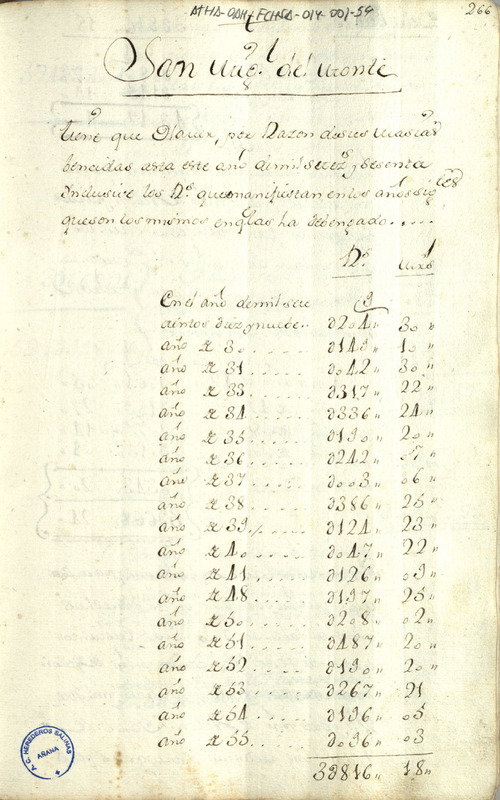 ATHA-DAH-FCHSA-014-001-54
266
San Mig.l del Monte
tiene que Hauer, por Razon desus Mas
bencidas asta este año de mil setez.s y sesenta
Inclusive los R.s que manifiestan en los años sig.tes
que son los mismos en q las ha debengado. . . . .
R.s Mrs
En el año de mil sete
cientos diez y nuebe . . 0204 " 30 "
año de 30 . . . . . 0143 " 10 "
año de 31 . . . . . 0042 " 30 "
año de 33 . . . . . 0317 " 22 "
año de 34 . . . . . 0336 " 24 "
año de 35 . . . . . 0190 " 20 "
año de 36 . . . . . 0242 " 07 "
año de 37 . . . . . 0003 " 06 "
año de 38 . . . . . 0386 " 25 "
año de 39 . . . . . 0124 " 23 "
año de 40 . . . . . 0047 " 22 "
año de 41 . . . . . 0126 " 09 "
año de 48 . . . . . 0197 " 25 "
año de 50 . . . . . 0208 " 02 "
año de 51 . . . . . 0487 " 20 "
año de 52 . . . . . 0190 " 20 "
año de 53 . . . . . 0267 " 21
año de 54 . . . . . 0196 " 05
año de 55 . . . . . 0096 " 03
33816 " 18 "
A.C. HEREDEROS SALINAS
AÑANA